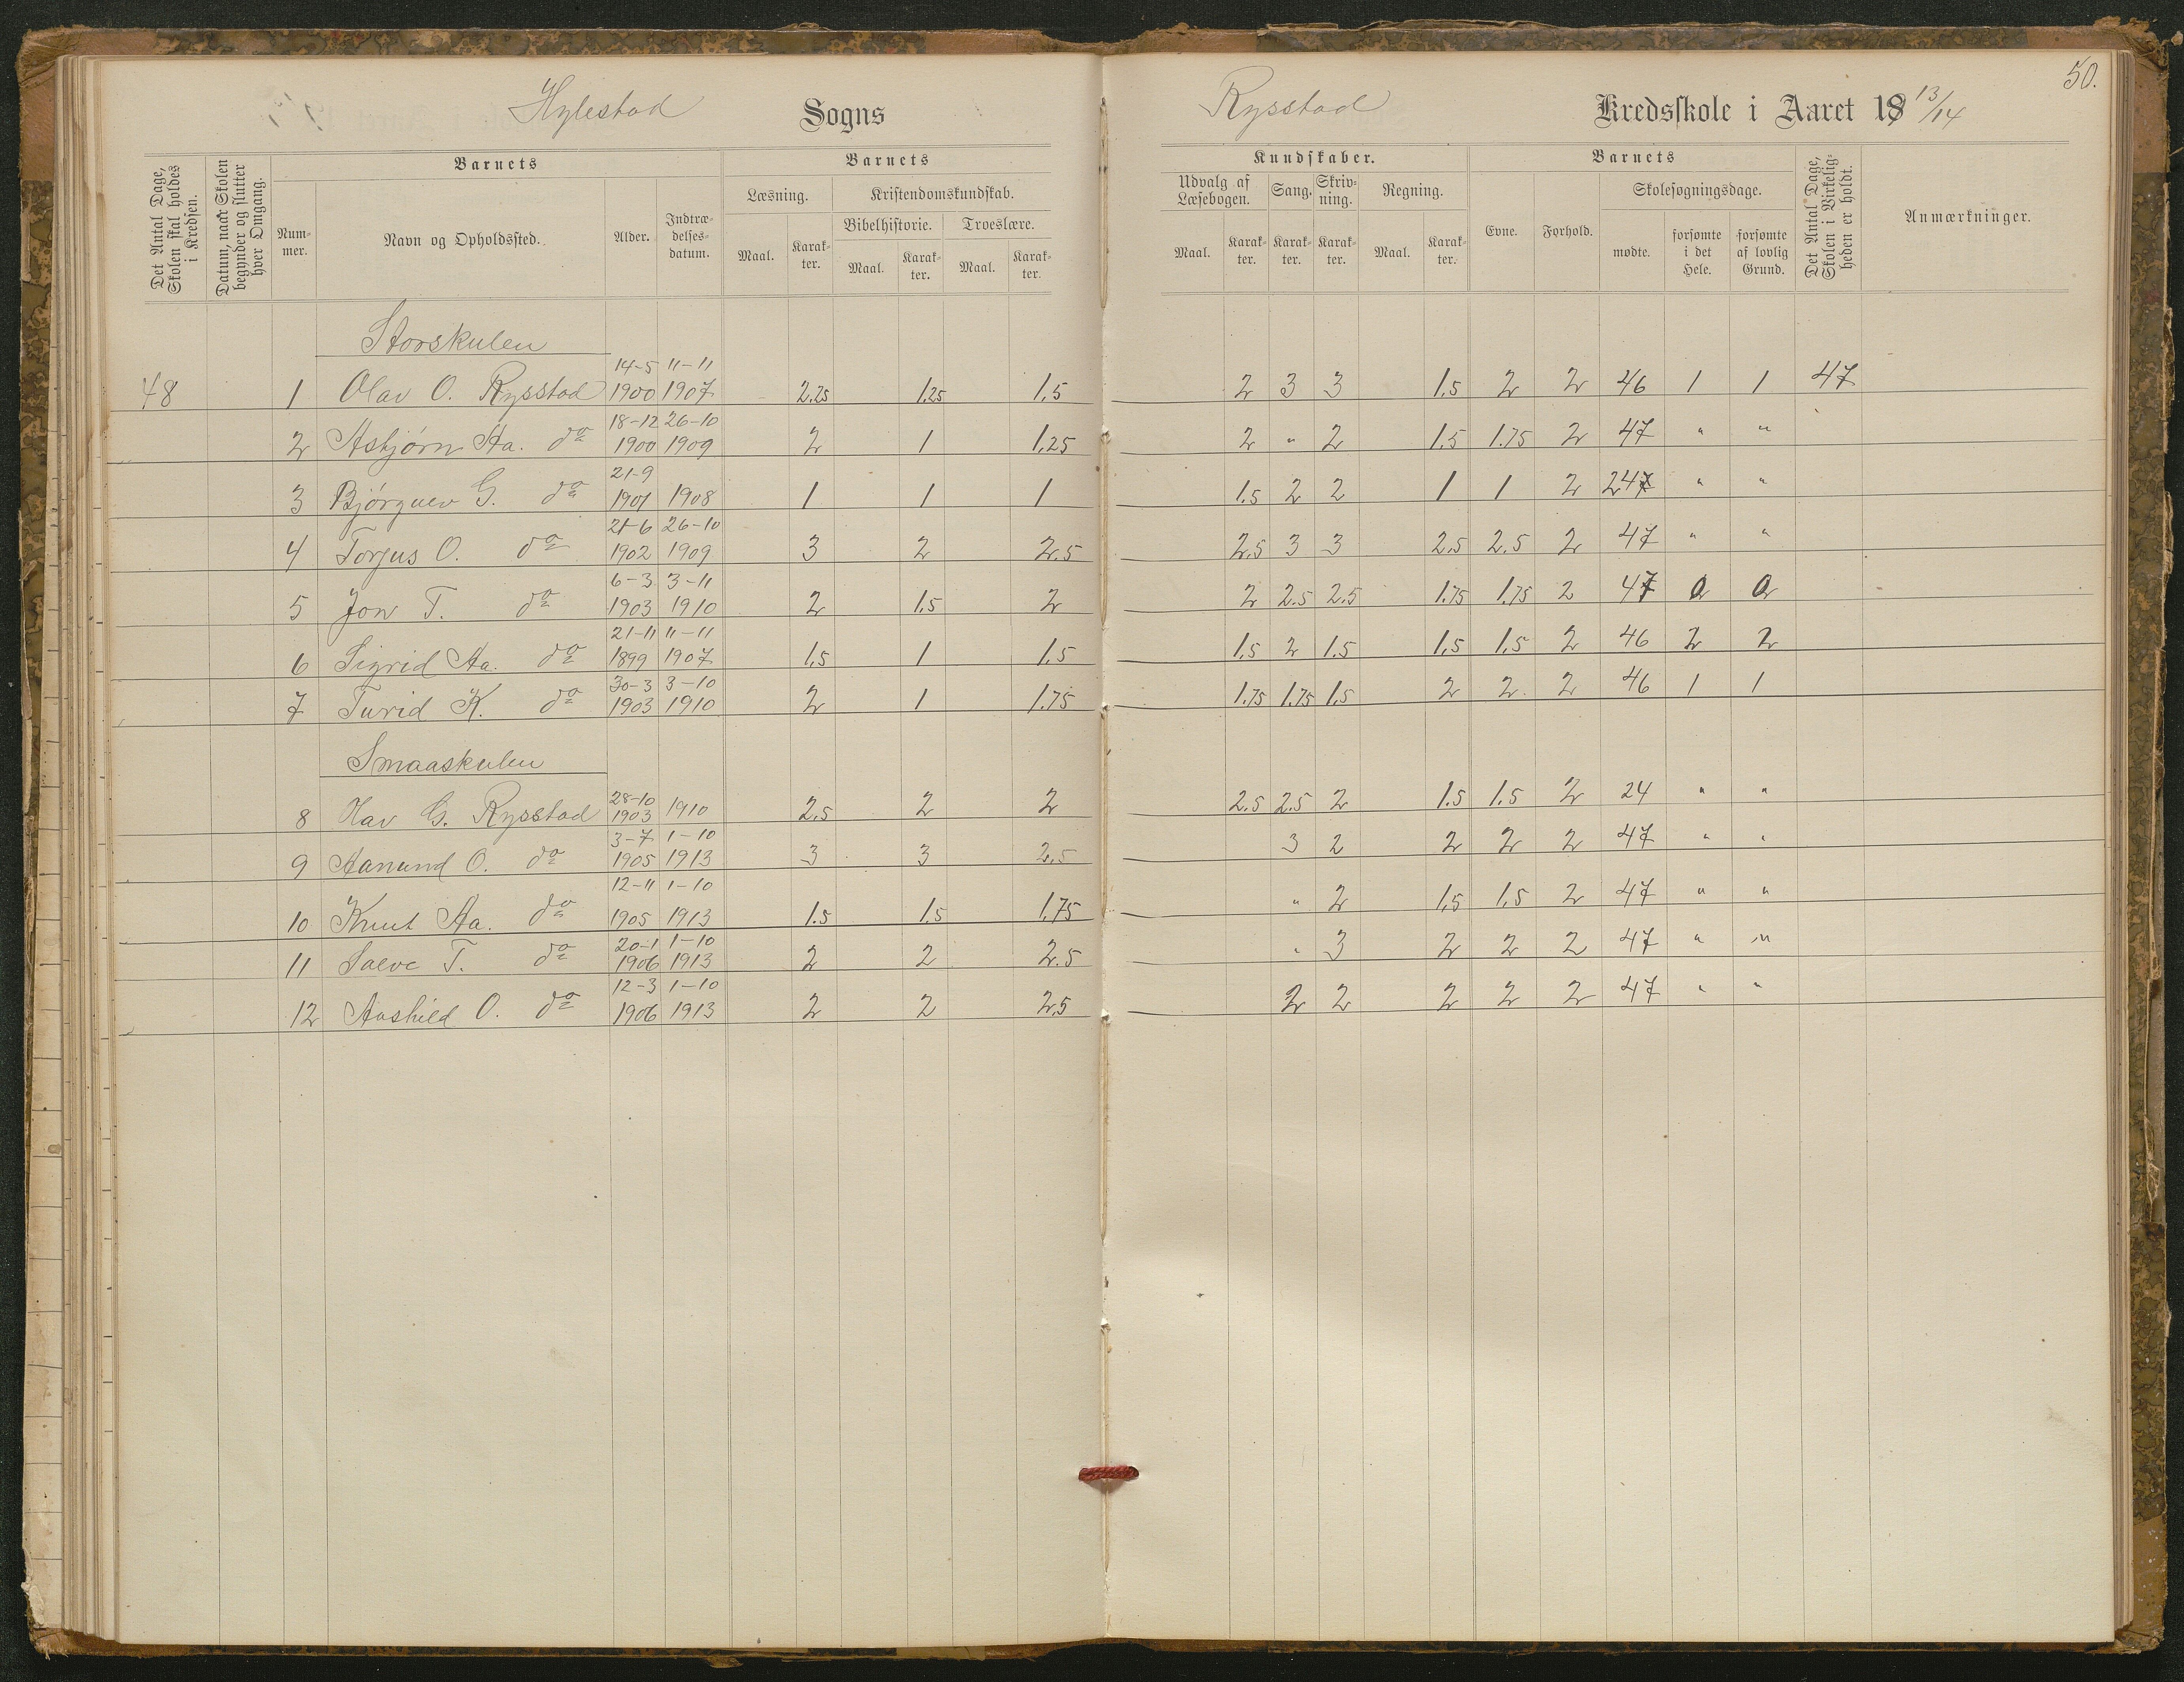 50.
Hylestad Sogns Rysstad Kredsskole i Aaret 19 13/14
Det Antal Dage, Skolen skal holdes i Kredsen.
Datum, naar Skolen begynder og slutter hver Omgang.
Barnets
Nummer.
Navn og Opholdssted.
Alder.
Indtrædelsesdatum.
Barnets
Læsning.
Maal. Karakter.
Kristendomskundskab.
Bibelhistorie. Troeslære.
Maal. Karakter. Maal. Karakter.
Kundskaber.
Udvalg af Læsebogen. Sang. Skrivning. Regning.
Maal. Karakter. Karakter. Karakter. Maal. Karakter.
Barnets
Evne. Forhold. Skolesøgningsdage.
mødte. forsømte i det Hele. forsømte af lovlig Grund.
Det Antal Dage, Skolen i Virkeligheden er holdt.
Anmærkninger.
Storskulen
48 1 Olav O. Rysstad 14-5 1900 11-11 1907 2.25 1.25 1.5 2 3 3 1.5 2 2 46 1 1 47
2 Asbjørn Aa. do 18-12 1900 26-10 1909 2 1 1.25 2 " 2 1.5 1.75 2 47 " "
3 Bjørguv G. do 21-9 1901 1908 1 1 1 1.5 2 2 1 1 2 247 " "
4 Torjus O. do 21-6 1902 26-10 1909 3 2 2.5 2.5 3 3 2.5 2.5 2 47 " "
5 Jon T. do 6-3 1903 3-11 1910 2 1.5 2 2 2.5 2.5 1.75 1.75 2 47 0 0
6 Sigrid Aa. do 21-11 1899 11-11 1907 1.5 1 1.5 1.5 2 1.5 1.5 1.5 2 46 2 2
7 Turid K. do 30-3 1903 3-10 1910 2 1 1.75 1.75 1.75 1.5 2 2 2 46 1 1
Smaaskulen
8 Olav G. Rysstad 28-10 1903 1910 2.5 2 2 2.5 2.5 2 1.5 1.5 2 24 " "
9 Aanund O. do 3-7 1905 1-10 1913 3 3 2.5 3 2 2 2 2 47 " "
10 Knut Aa. do 12-11 1905 1-10 1913 1.5 1.5 1.75 " 2 1.5 1.5 2 47 " "
11 Salve T. do 20-1 1906 1-10 1913 2 2 2.5 " 3 2 2 2 47 " "
12 Aashild O. do 12-3 1906 1-10 1913 2 2 2.5 2 2 2 2 2 47 " "